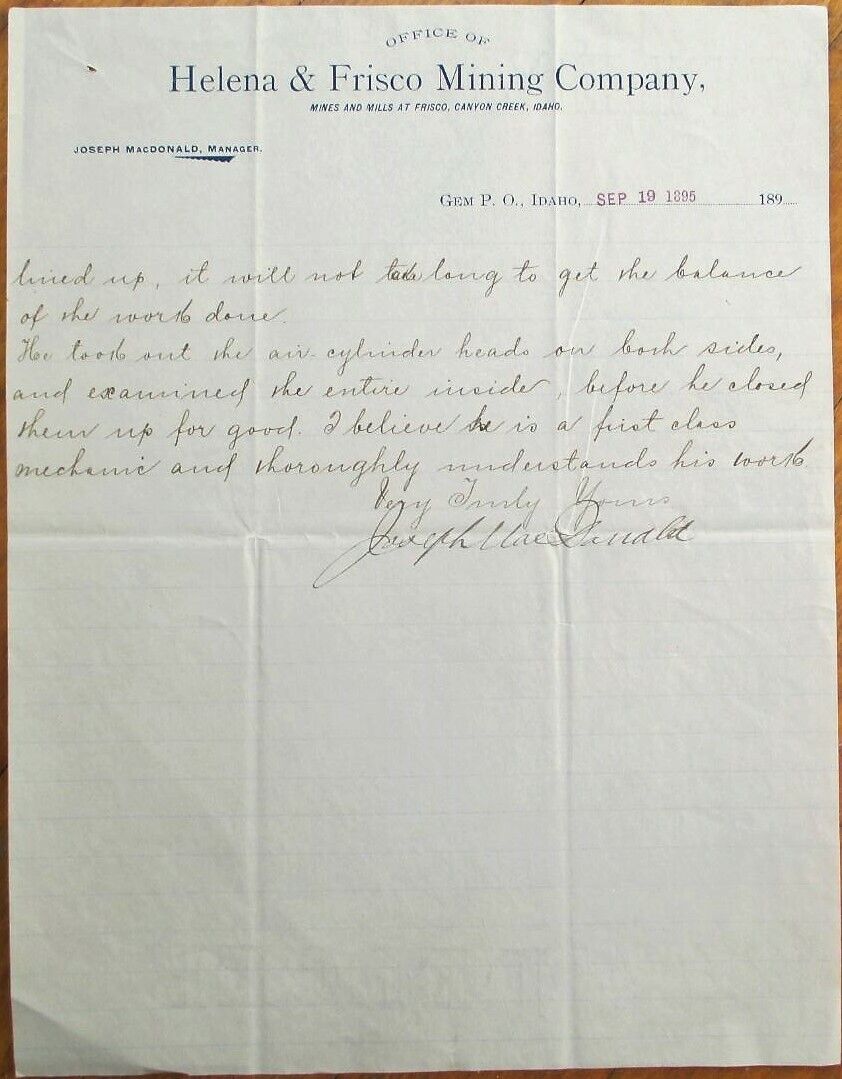 OFFICE OF
Helena & Frisco Mining Company,
MINES AND MILLS AT FRISCO, CANYON CREEK, IDAHO.
JOSEPH MACDONALD, MANAGER.
GEM P. O., IDAHO, SEP 19 1895 189
lined up, it will not take long to get the balance
of the work done.
He took out the air-cylinder heads on both sides,
and examined the entire inside, before he closed
them up for good. I believe he is a first class
mechanic and thoroughly understands his work
Very Truly Yours
Joseph MacDonald